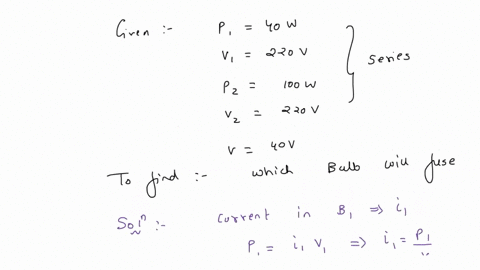 Given :- P₁ = 40 W
V₁ = 220 V
P₂ = 100 W
V₂ = 220 V
Series
V = 40V
To find :- which Bulb will fuse
Solⁿ :- Current in B₁ ⇒ i₁
P₁ = i₁ V₁ ⇒ i₁ = P₁/